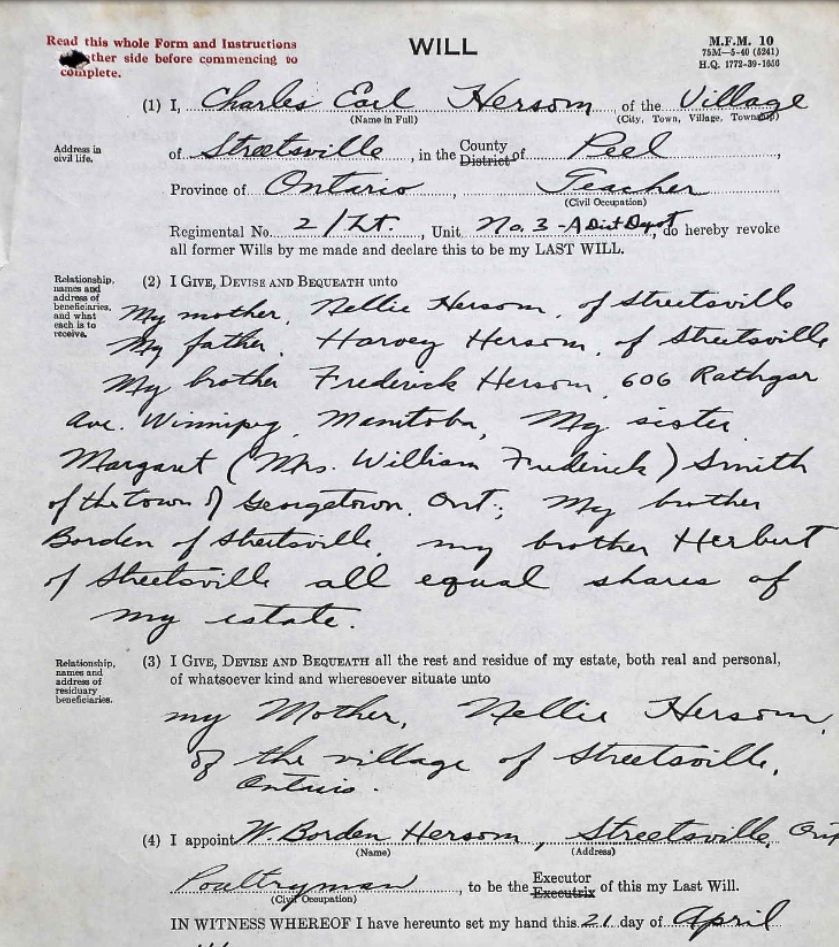 Read this whole Form and Instructions
WILL
M.F.M. 10
75M—5-40 (5241)
H.Q. 1772-39-1650
other side before commencing to
complete.
(1) I, Charles Earl Hersom of the Village
(Name in Full) (City, Town, Village, Township)
Address in
civil life.
of Streetsville, in the County District of Peel,
Province of Ontario, Teacher
(Civil Occupation)
Regimental No. 2/Lt., Unit No. 3-A Dist Depot, do hereby revoke
all former Wills by me made and declare this to be my LAST WILL.
Relationship,
names and
address of
beneficiaries,
and what
each is to
receive.
(2) I GIVE, DEVISE AND BEQUEATH unto
My mother, Nellie Hersom, of Streetsville
My father, Harvey Hersom, of Streetsville
My brother Frederick Hersom, 606 Rathgar
Ave. Winnipeg, Manitoba, My sister
Margaret (Mrs. William Frederick) Smith
of the town of Georgetown, Ont; My brother
Borden of Streetsville, my brother Herbert
of Streetsville all equal shares of
my estate.
Relationship,
names and
address of
residuary
beneficiaries.
(3) I GIVE, DEVISE AND BEQUEATH all the rest and residue of my estate, both real and personal,
of whatsoever kind and wheresoever situate unto
my Mother, Nellie Hersom,
of the village of Streetsville,
Ontario.
(4) I appoint W. Borden Hersom, Streetsville, Ont
(Name) (Address)
Poultryman, to be the Executor Executrix of this my Last Will.
(Civil Occupation)
IN WITNESS WHEREOF I have hereunto set my hand this 21 day of April